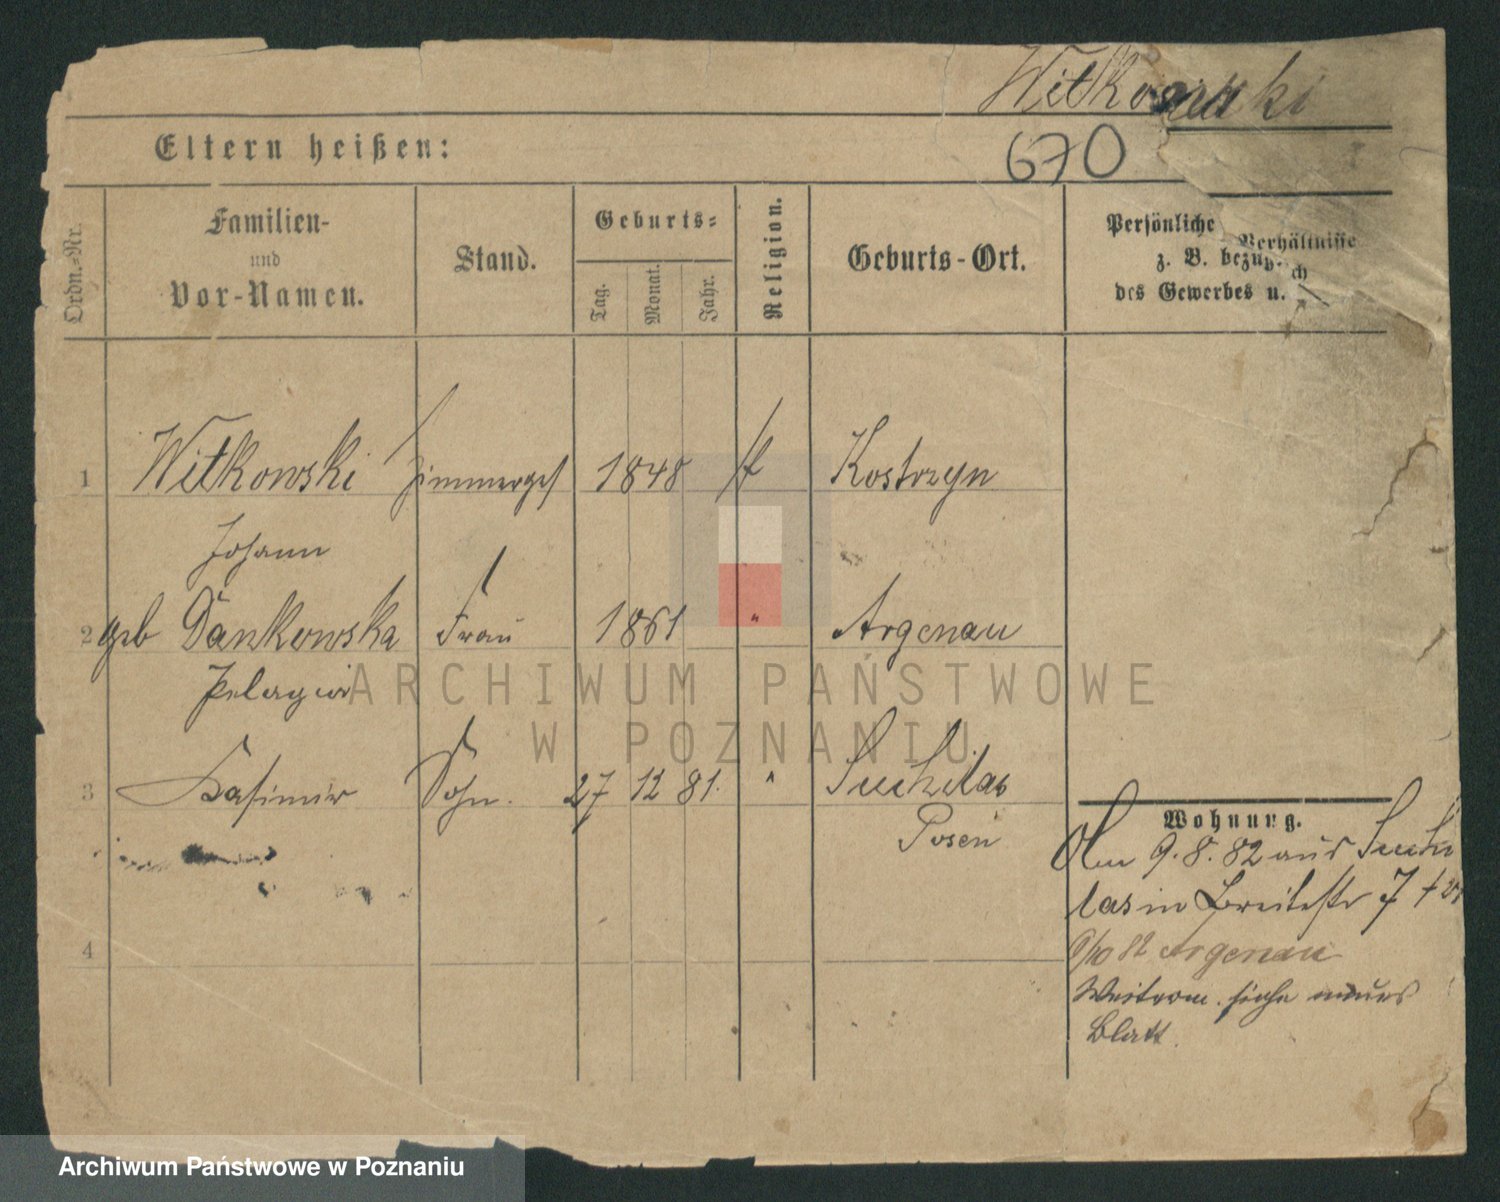 Witkowski
Eltern heißen:
670
Ordn.-Nr.
Familien-
und
Vor-Namen.
Stand.
Geburts-
Tag.
Monat.
Jahr.
Religion.
Geburts-Ort.
Persönliche Verhältnisse
z. B. bezüglich
des Gewerbes u.
1 Witkowski Zimmerges 1848 k Kostrzyn
Johann
2 geb Dankowska Frau 1861 " Argenau
Pelagia
3 Kasimir Sohn. 27 12 81. "
Posen
Wohnung.
9. 8. 82 aus
in Breitestr 7
82 Argenau
siehe neues
Blatt
4
ARCHIWUM PAŃSTWOWE
W POZNANIU
Archiwum Państwowe w Poznaniu